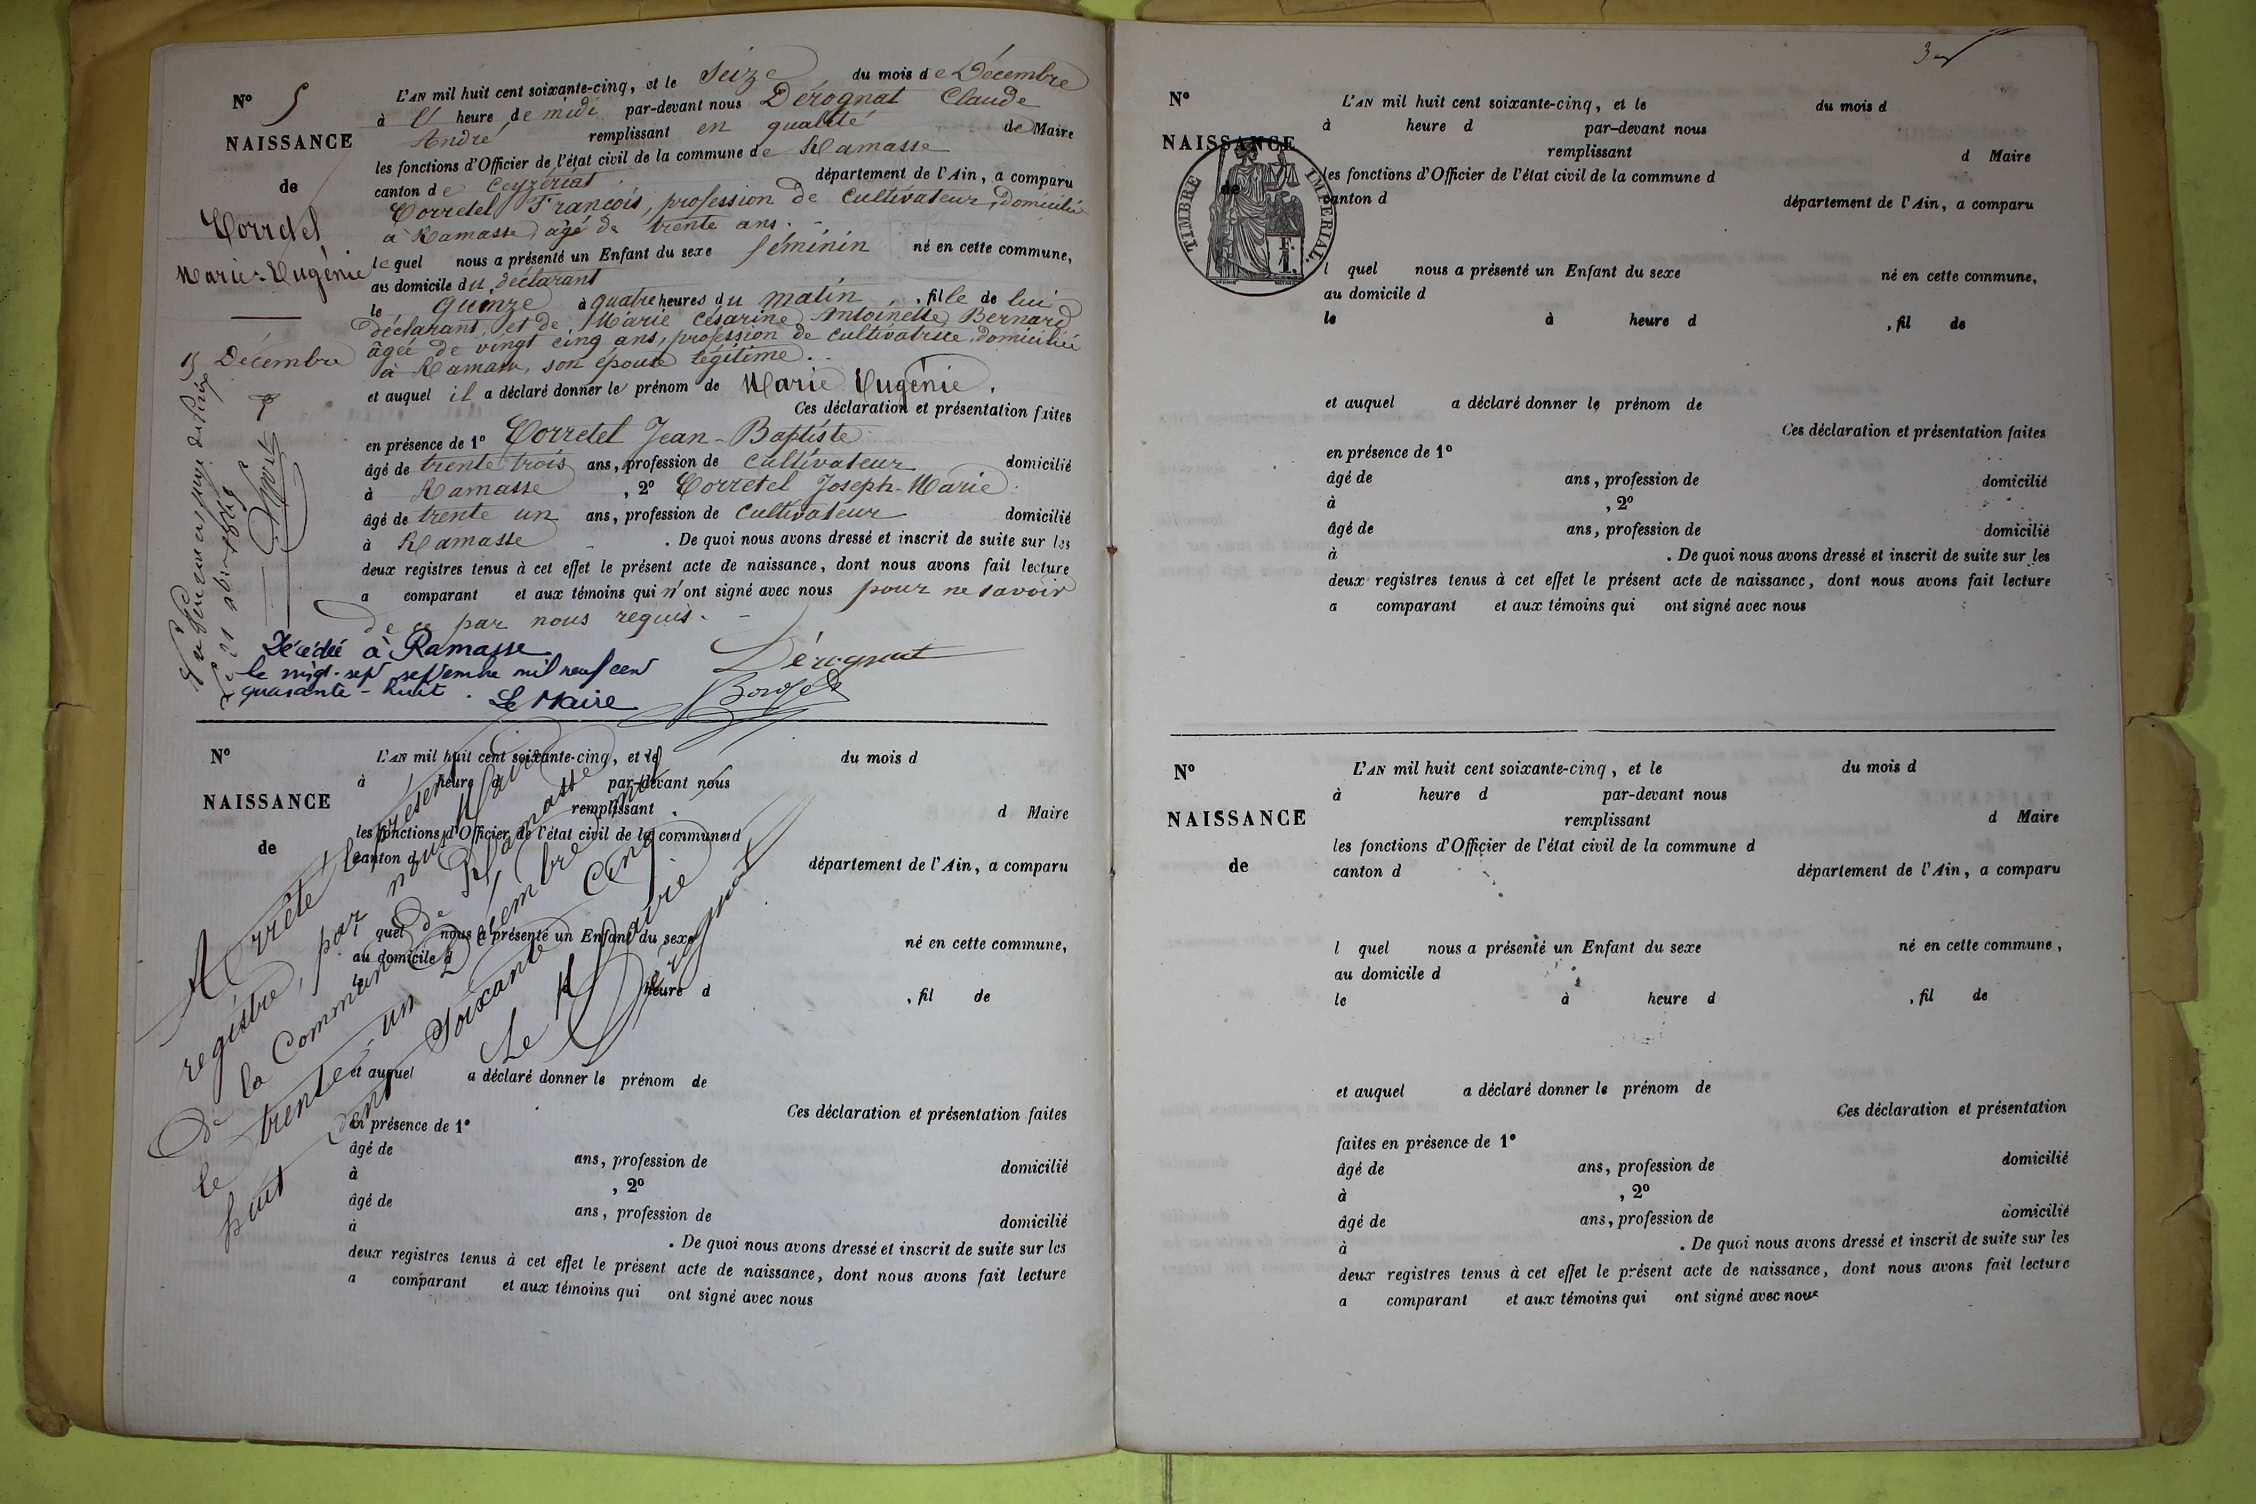 N° 5
NAISSANCE
de
Corretel
Marie-Eugénie
15 Décembre
L'AN mil huit cent soixante-cinq, et le seize du mois de Décembre
à l' heure de midi par-devant nous Dérognat Claude
André remplissant en qualité de Maire
les fonctions d'Officier de l'état civil de la commune de Ramasse
canton de Ceyzériat département de l'Ain, a comparu
Corretel François, profession de cultivateur, domicilié
à Ramasse, âgé de trente ans.
lequel nous a présenté un Enfant du sexe féminin né en cette commune,
au domicile du déclarant
le quinze à quatre heures du matin, fille de lui
déclarant, et de Marie Césarine Antoinette Bernard
âgée de vingt cinq ans, profession de cultivatrice, domiciliée
à Ramasse, son épouse légitime.
et auquel il a déclaré donner le prénom de Marie Eugénie.
Ces déclaration et présentation faites
en présence de 1° Corretel Jean-Baptiste
âgé de trente trois ans, profession de cultivateur domicilié
à Ramasse, 2° Corretel Joseph-Marie
âgé de trente un ans, profession de cultivateur domicilié
à Ramasse. De quoi nous avons dressé et inscrit de suite sur les
deux registres tenus à cet effet le présent acte de naissance, dont nous avons fait lecture
a comparant et aux témoins qui n'ont signé avec nous pour ne savoir
de ce par nous requis.
Dérognat
Décédée à Ramasse
le vingt-sept septembre mil neuf cent
quarante-huit. Le Maire
N°
NAISSANCE
de
L'AN mil huit cent soixante-cinq, et le du mois d
à heure d par-devant nous
remplissant d Maire
les fonctions d'Officier de l'état civil de la commune d
canton d département de l'Ain, a comparu
l quel nous a présenté un Enfant du sexe né en cette commune,
au domicile d
le à heure d , fil de
et auquel a déclaré donner le prénom de
Ces déclaration et présentation faites
en présence de 1°
âgé de ans, profession de domicilié
à , 2°
âgé de ans, profession de domicilié
à . De quoi nous avons dressé et inscrit de suite sur les
deux registres tenus à cet effet le présent acte de naissance, dont nous avons fait lecture
a comparant et aux témoins qui ont signé avec nous
Arrêté le présent
registre, par nous Maire
de la Commune de Ramasse
le trente-un Décembre mil
huit cent soixante cinq.
Le Maire
Dérognat
N°
NAISSANCE
de
TIMBRE IMPERIAL
L'AN mil huit cent soixante-cinq, et le du mois d
à heure d par-devant nous
remplissant d Maire
les fonctions d'Officier de l'état civil de la commune d
canton d département de l'Ain, a comparu
l quel nous a présenté un Enfant du sexe né en cette commune,
au domicile d
le à heure d , fil de
et auquel a déclaré donner le prénom de
Ces déclaration et présentation faites
en présence de 1°
âgé de ans, profession de domicilié
à , 2°
âgé de ans, profession de domicilié
à . De quoi nous avons dressé et inscrit de suite sur les
deux registres tenus à cet effet le présent acte de naissance, dont nous avons fait lecture
a comparant et aux témoins qui ont signé avec nous
N°
NAISSANCE
de
L'AN mil huit cent soixante-cinq, et le du mois d
à heure d par-devant nous
remplissant d Maire
les fonctions d'Officier de l'état civil de la commune d
canton d département de l'Ain, a comparu
l quel nous a présenté un Enfant du sexe né en cette commune,
au domicile d
le à heure d , fil de
et auquel a déclaré donner le prénom de
Ces déclaration et présentation
faites en présence de 1°
âgé de ans, profession de domicilié
à , 2°
âgé de ans, profession de domicilié
à . De quoi nous avons dressé et inscrit de suite sur les
deux registres tenus à cet effet le présent acte de naissance, dont nous avons fait lecture
a comparant et aux témoins qui ont signé avec nous